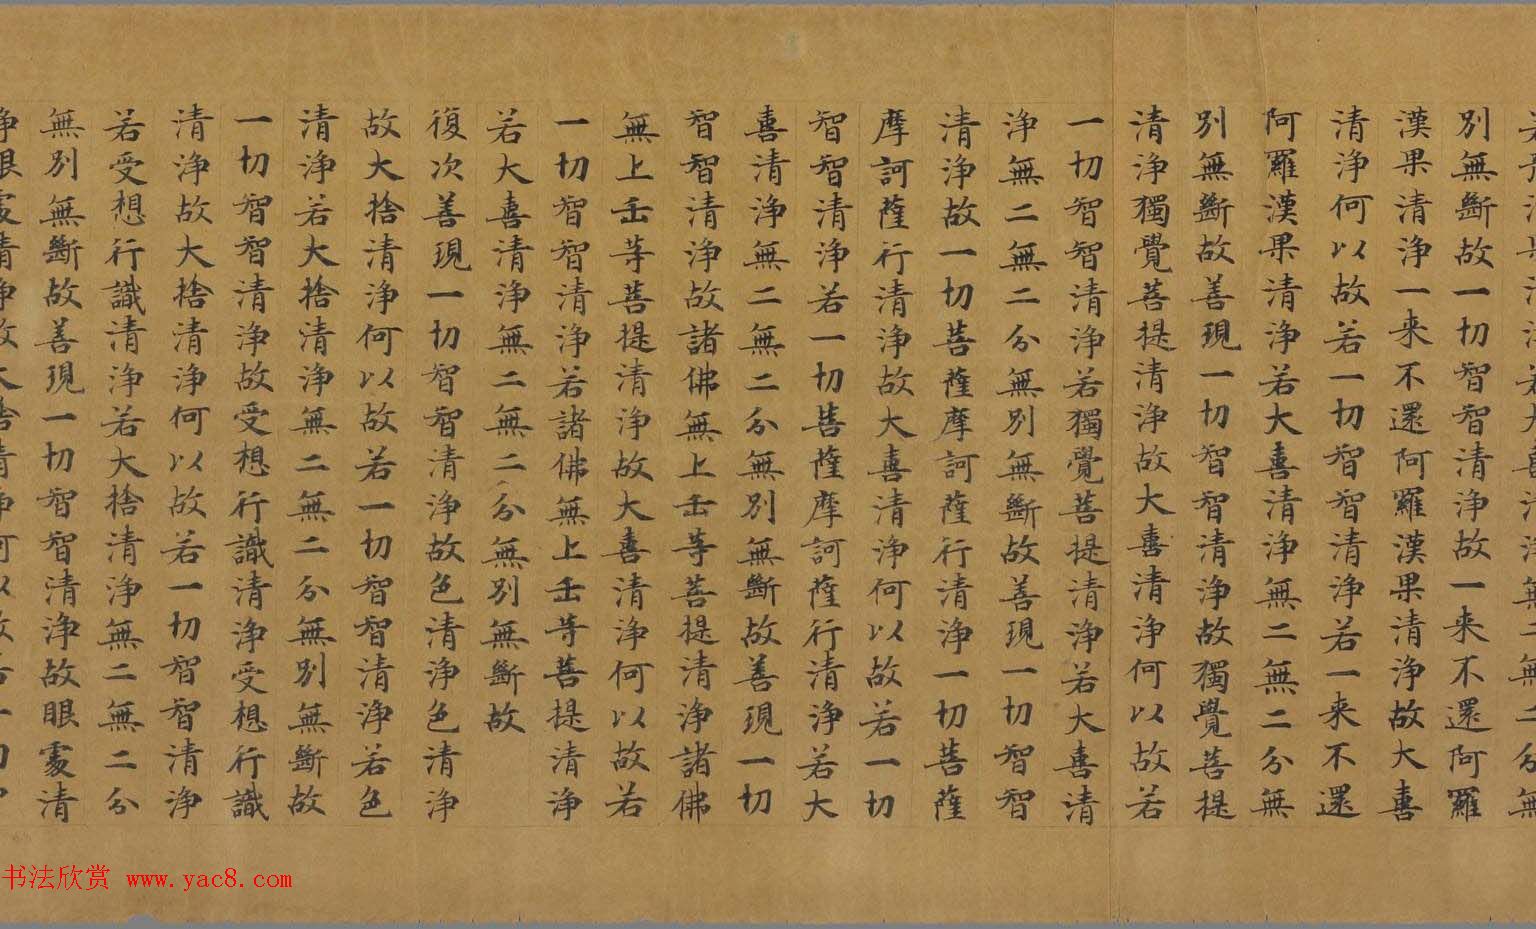 無二無二分無
別無斷故一切智智清淨故一来不還阿羅
漢果清淨一来不還阿羅漢果清淨故大喜
清淨何以故若一切智智清淨若一来不還
阿羅漢果清淨若大喜清淨無二無二分無
別無斷故善現一切智智清淨故獨覺菩提
清淨獨覺菩提清淨故大喜清淨何以故若
一切智智清淨若獨覺菩提清淨若大喜清
淨無二無二分無別無斷故善現一切智智
清淨故一切菩薩摩訶薩行清淨一切菩薩
摩訶薩行清淨故大喜清淨何以故若一切
智智清淨若一切菩薩摩訶薩行清淨若大
喜清淨無二無二分無別無斷故善現一切
智智清淨故諸佛無上正等菩提清淨諸佛
無上正等菩提清淨故大喜清淨何以故若
一切智智清淨若諸佛無上正等菩提清淨
若大喜清淨無二無二分無別無斷故
復次善現一切智智清淨故色清淨色清淨
故大捨清淨何以故若一切智智清淨若色
清淨若大捨清淨無二無二分無別無斷故
一切智智清淨故受想行識清淨受想行識
清淨故大捨清淨何以故若一切智智清淨
若受想行識清淨若大捨清淨無二無二分
無別無斷故善現一切智智清淨故眼處清
淨眼處清淨故大捨清淨何以故若一切
书法欣赏 www.yac8.com